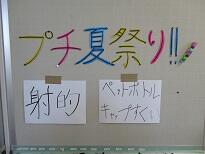 プチ夏祭り!!
射的
ペットボトル
キャップすくい